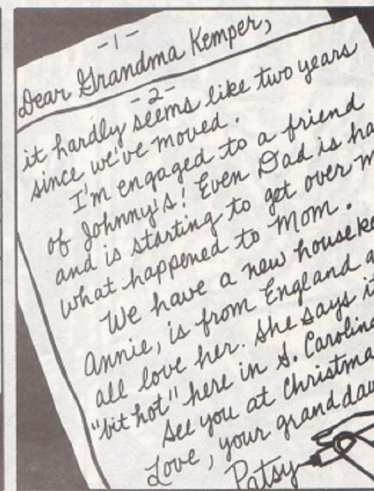 -1-
Dear Grandma Kemper,
-2-
it hardly seems like two years
since we've moved.
I'm engaged to a friend
of Johnny's! Even Dad is ha
and is starting to get over
what happened to Mom.
We have a new houseke
Annie, is from England a
all love her. She says it
"bit hot" here in S. Carolina
See you at Christma
Love, your grand dau
Patsy